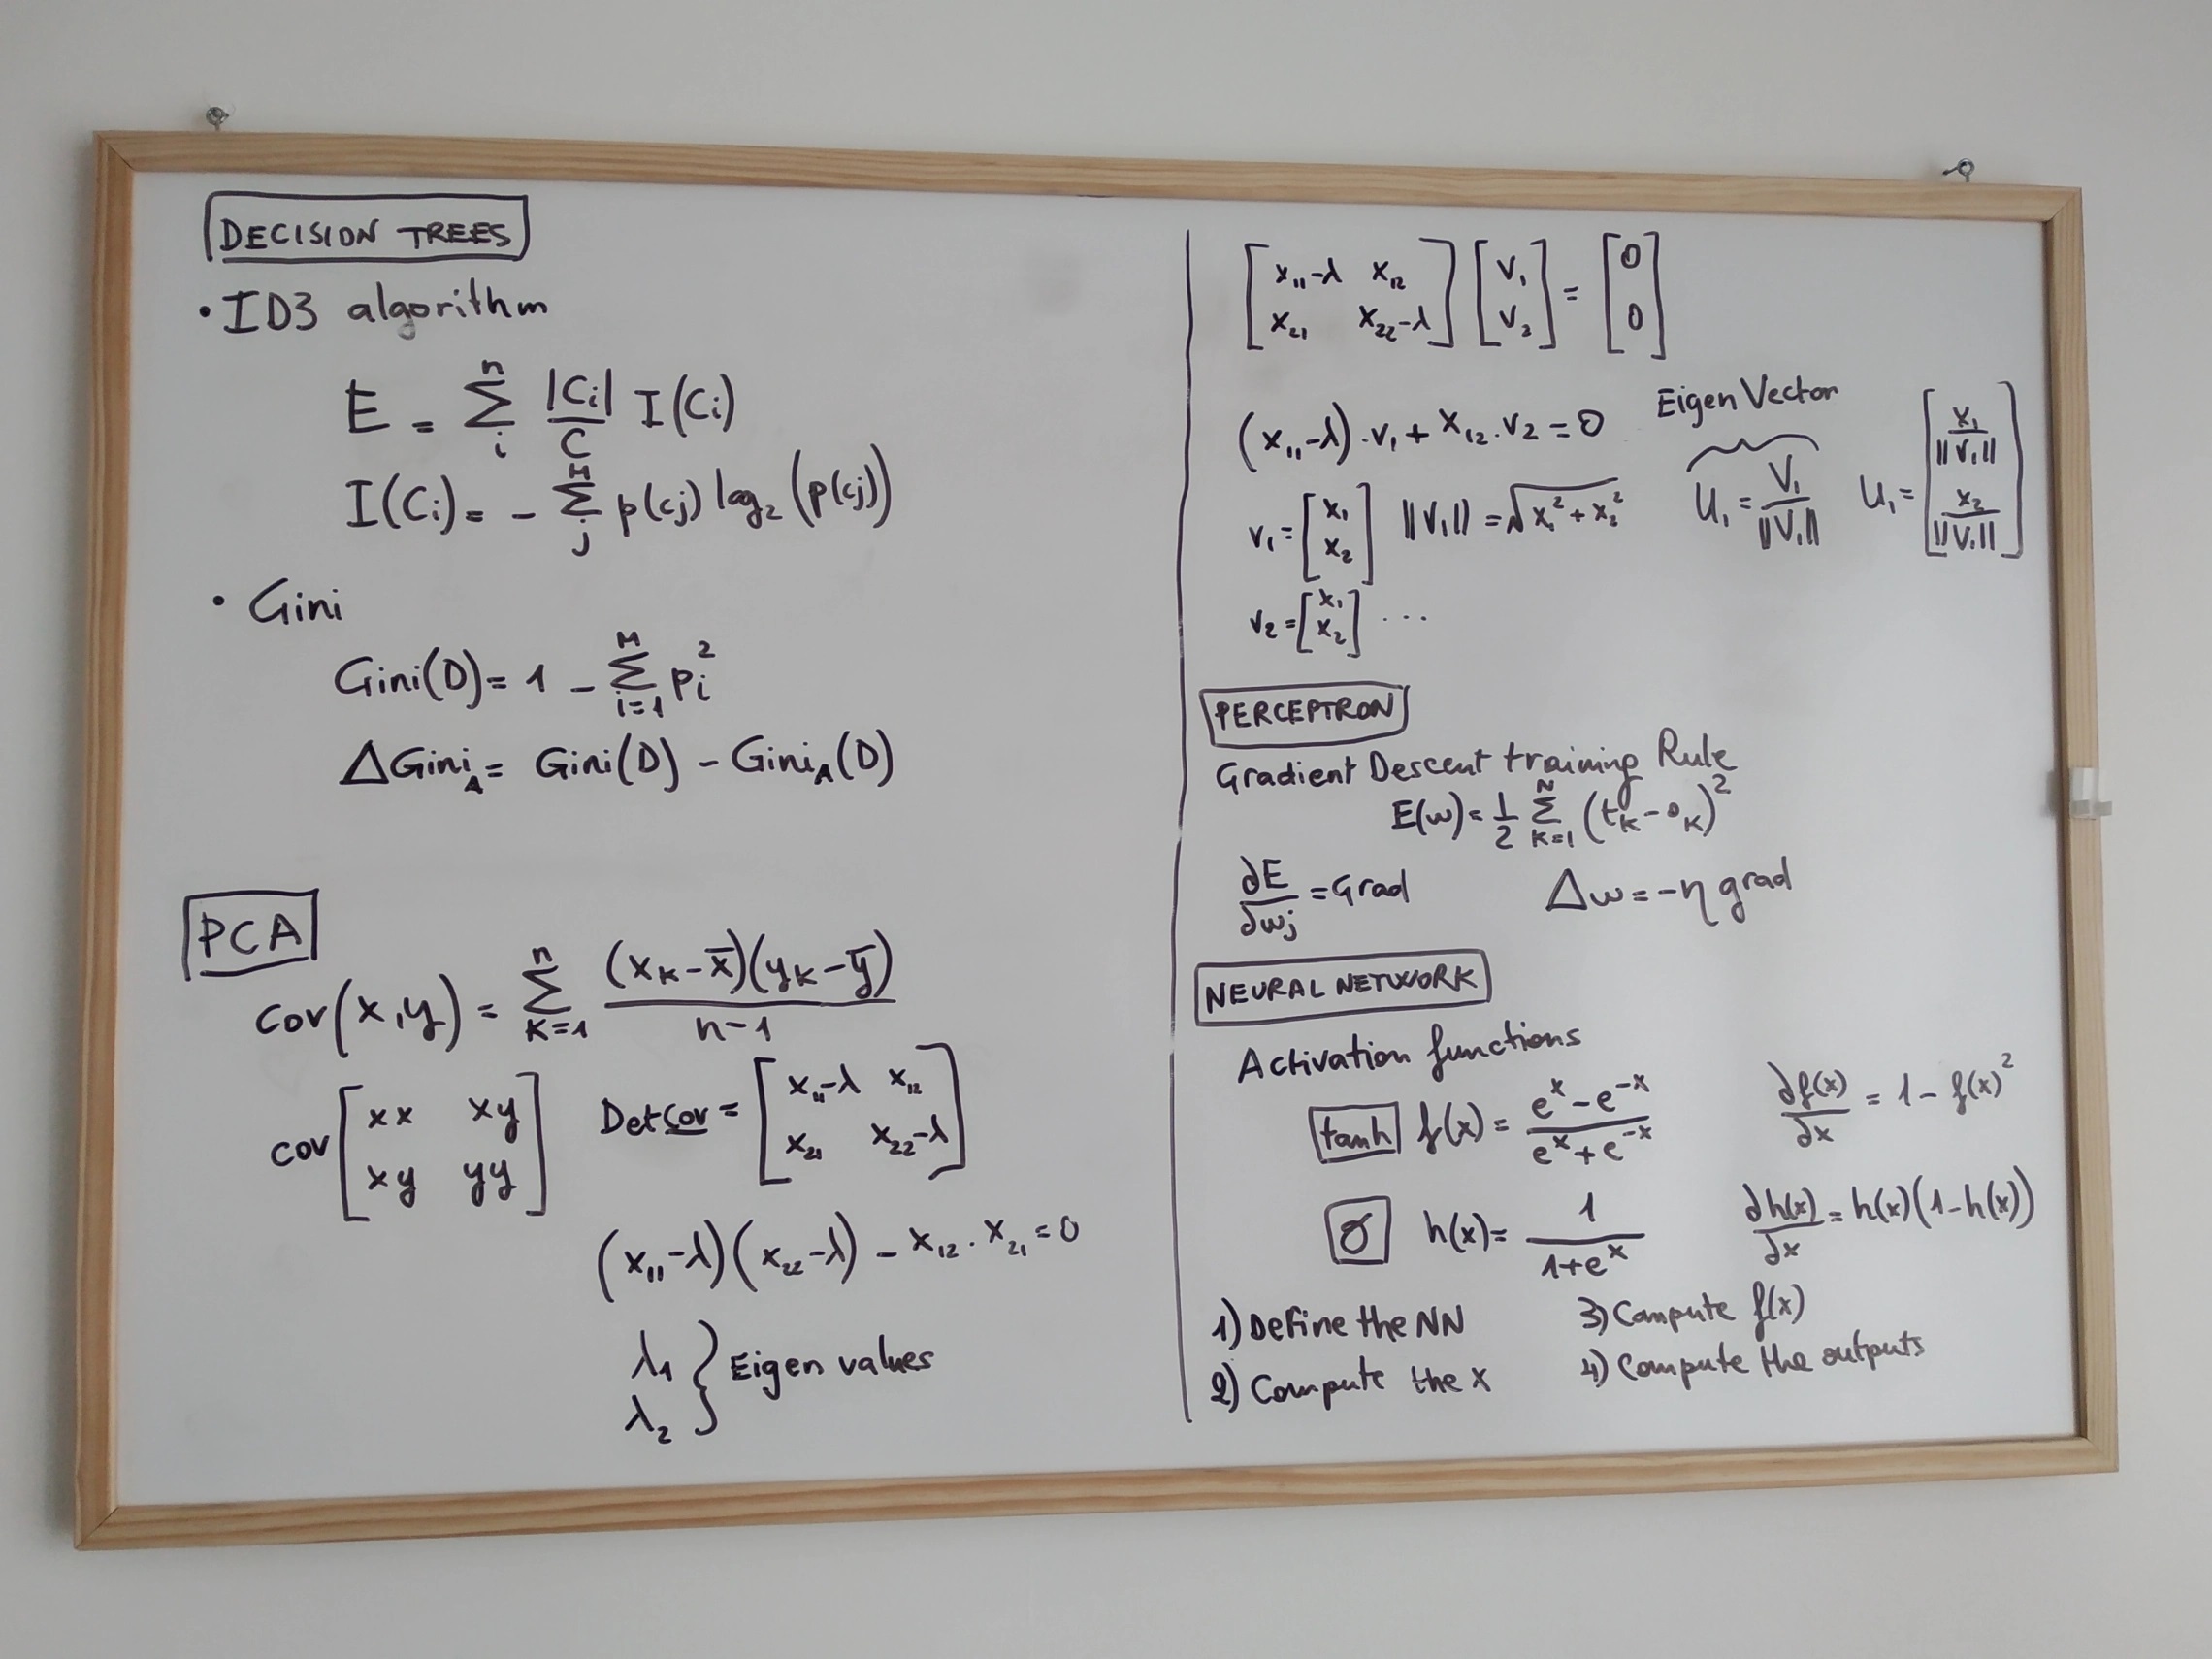 DECISION TREES
• ID3 algorithm
E = Σ_i^n |Ci|/C I(Ci)
I(Ci) = - Σ_j^M p(cj) log₂ (p(cj))
• Gini
Gini(D) = 1 - Σ_{i=1}^M pi²
ΔGini_A = Gini(D) - Gini_A(D)
PCA
cov(x,y) = Σ_{K=1}^n (xK - x̄)(yK - ȳ) / n-1
cov [xx xy; xy yy]
Det cov = [x₁₁-λ x₁₂; x₂₁ x₂₂-λ]
(x₁₁-λ)(x₂₂-λ) - x₁₂ . x₂₁ = 0
λ₁
λ₂ } Eigen values
[x₁₁-λ x₁₂; x₂₁ x₂₂-λ] [v₁; v₂] = [0; 0]
(x₁₁-λ) . v₁ + x₁₂ . v₂ = 0
Eigen Vector
v₁ = [x₁; x₂] ||V₁|| = √(x₁² + x₂²) U₁ = V₁/||V₁|| U₁ = [x₁/||V₁||; x₂/||V₁||]
v₂ = [x₁; x₂] ...
PERCEPTRON
Gradient Descent training Rule
E(w) = 1/2 Σ_{K=1}^N (tK - oK)²
∂E/∂wj = Grad Δw = -η grad
NEURAL NETWORK
Activation functions
tanh f(x) = (e^x - e^-x)/(e^x + e^-x) ∂f(x)/∂x = 1 - f(x)²
σ h(x) = 1/(1+e^x) ∂h(x)/∂x = h(x)(1-h(x))
1) Define the NN
2) Compute the x
3) Compute f(x)
4) Compute the outputs